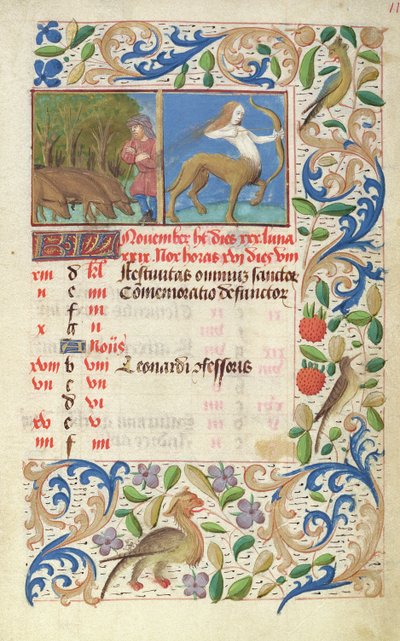 11
KL November ht dies xxx luna
xxix Nox horas xvj dies viij
xiii d kl Festiuitas omniuz sanctor
ii e iiii Comemoratio defunctor
f iii
x g ii
A Noñs
xviii b viii Leonardi ofessoris
vii c vii
d vi
xv e v
iiii f iiii